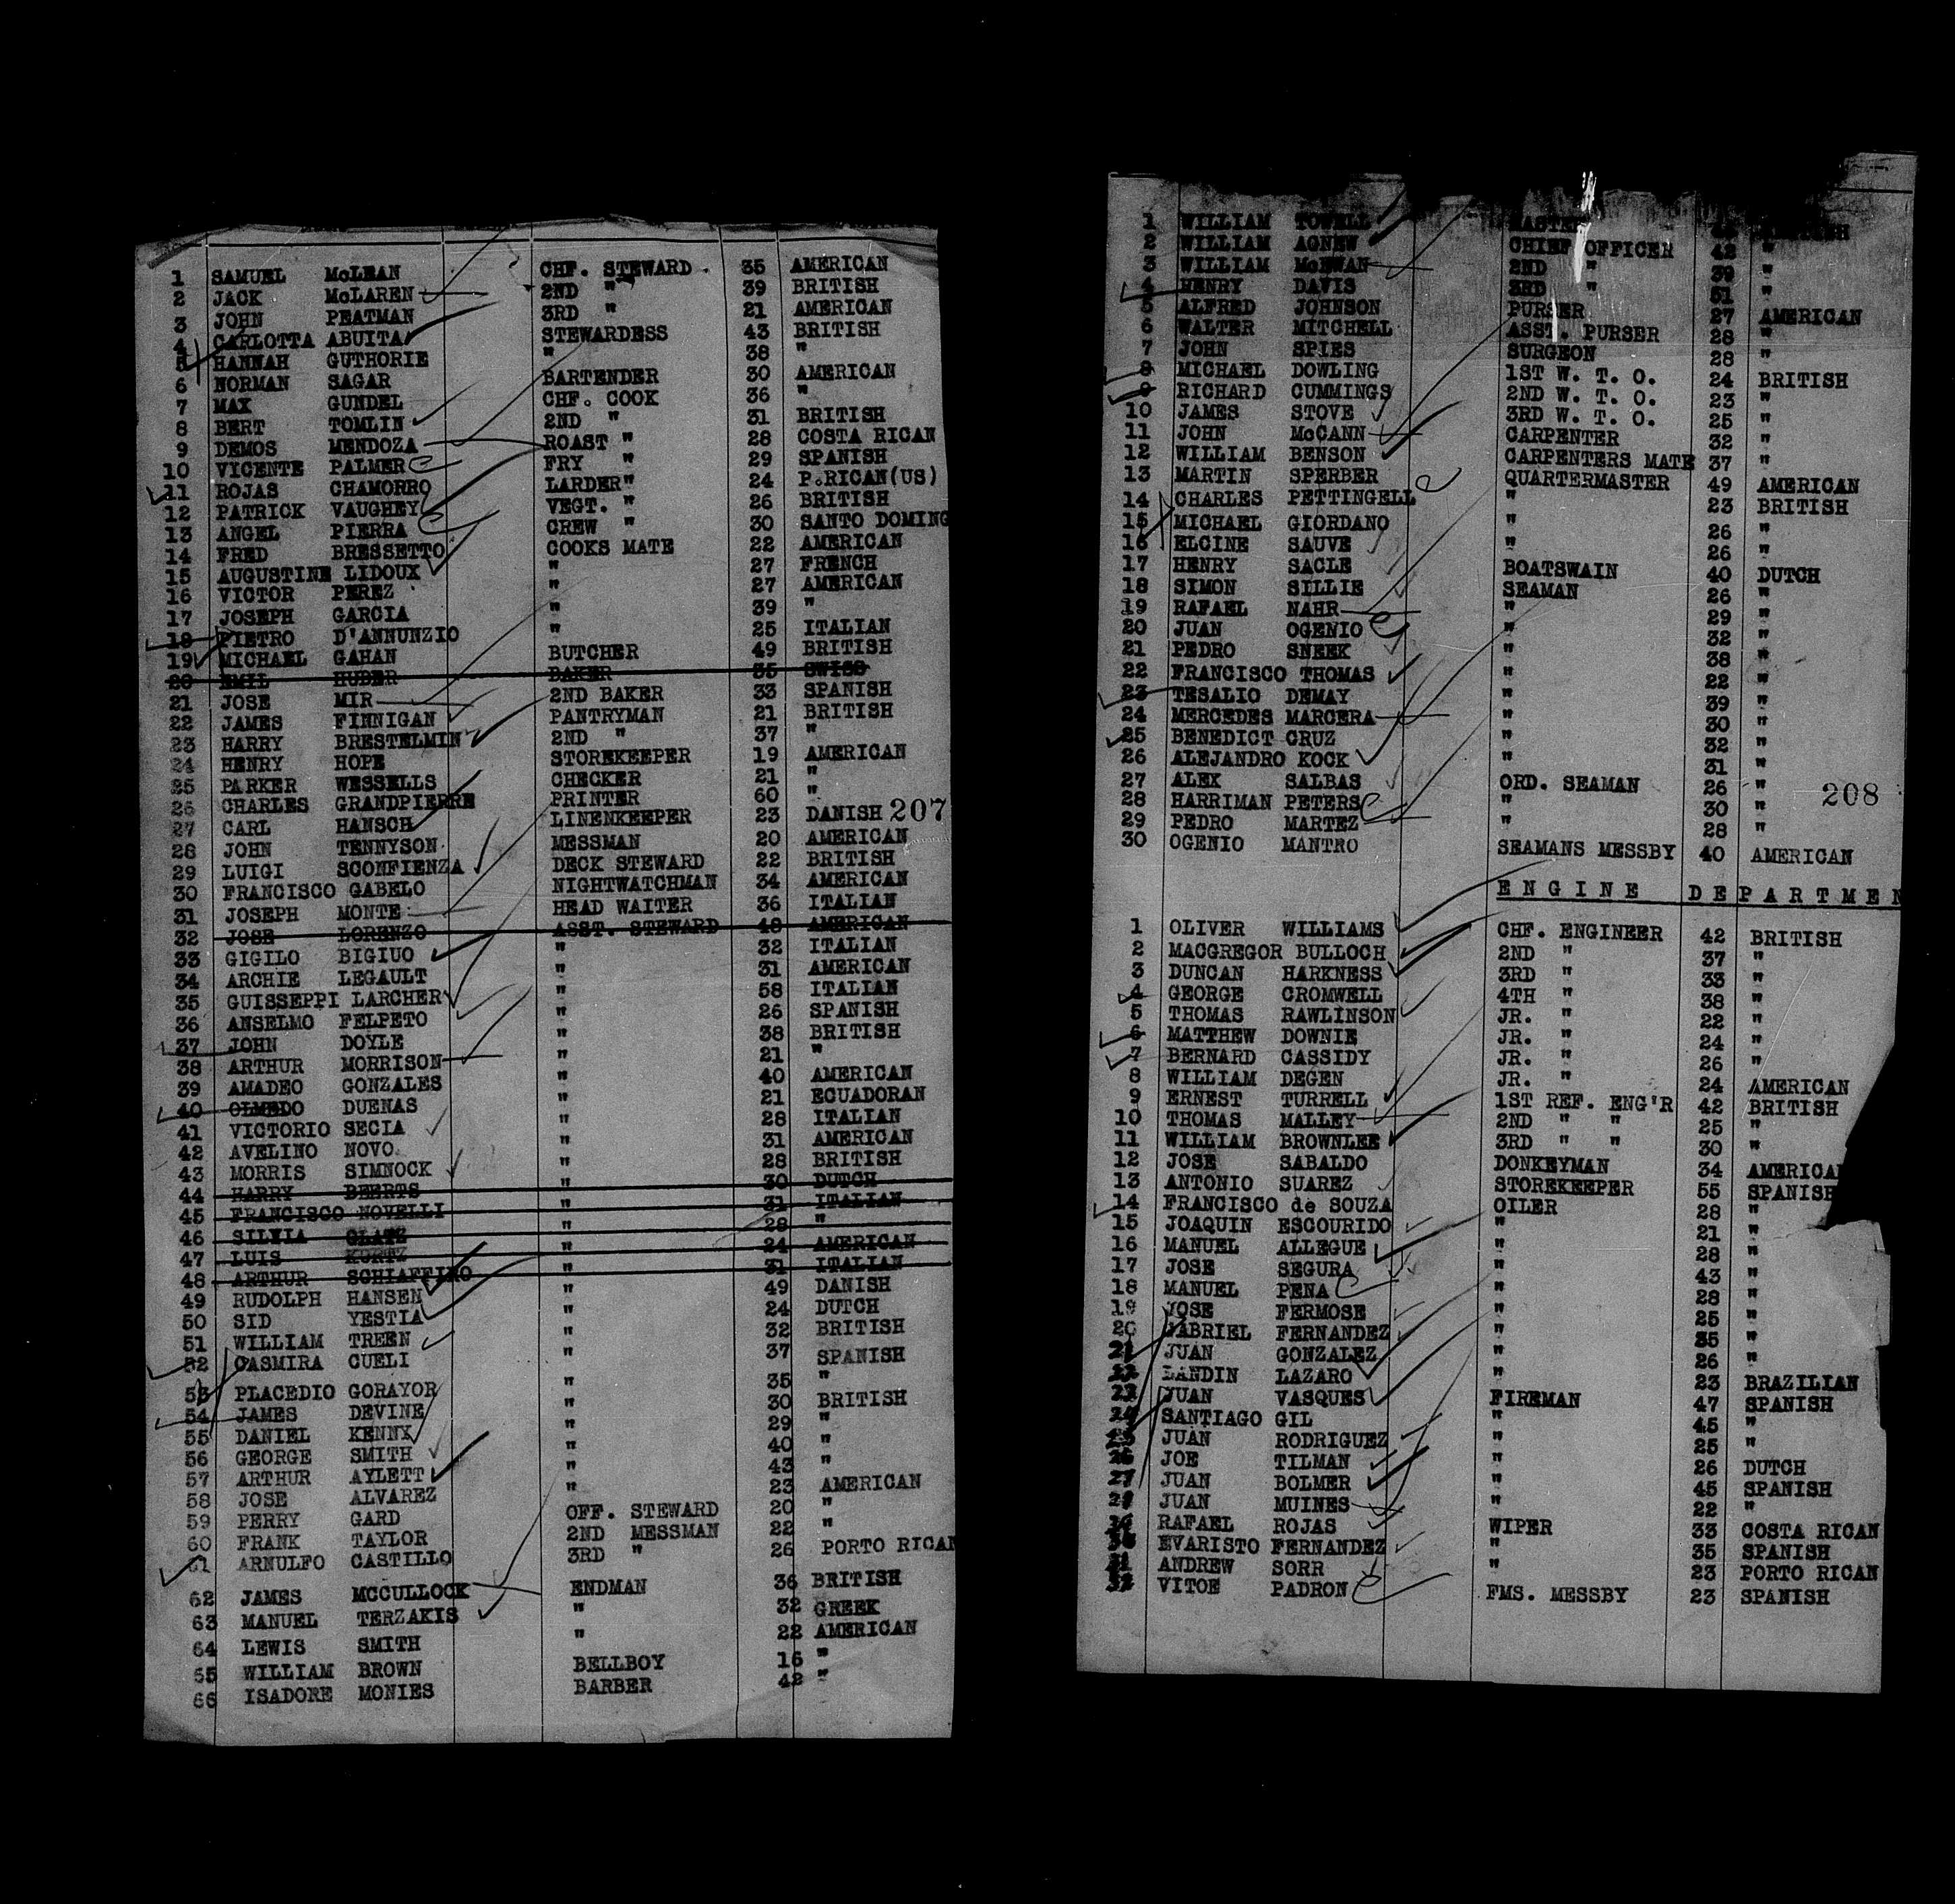 1 SAMUEL McLEAN CHF. STEWARD 35 AMERICAN
2 JACK McLAREN 2ND " 39 BRITISH
3 JOHN PEATMAN 3RD " 21 AMERICAN
4 CARLOTTA ABUITA STEWARDESS 43 BRITISH
5 HANNAH GUTHORIE " 38 "
6 NORMAN SAGAR BARTENDER 30 AMERICAN
7 MAX GUNDEL CHF. COOK 36 "
8 BERT TOMLIN 2ND " 31 BRITISH
9 DEMOS MENDOZA ROAST " 28 COSTA RICAN
10 VICENTE PALMER FRY " 29 SPANISH
11 ROJAS CHAMORRO LARDER" 24 P.RICAN(US)
12 PATRICK VAUGHEY VEGT. " 26 BRITISH
13 ANGEL PIERRA CREW " 30 SANTO DOMING
14 FRED BRESSETTO COOKS MATE 22 AMERICAN
15 AUGUSTINE LIDOUX " 27 FRENCH
16 VICTOR PEREZ " 27 AMERICAN
17 JOSEPH GARCIA " 39 "
18 PIETRO D'ANNUNZIO " 25 ITALIAN
19 MICHAEL GAHAN BUTCHER 49 BRITISH
20 EMIL HUBER BAKER 35 SWISS
21 JOSE MIR 2ND BAKER 33 SPANISH
22 JAMES FINNIGAN PANTRYMAN 21 BRITISH
23 HARRY BRESTELMIN 2ND " 37 "
24 HENRY HOPE STOREKEEPER 19 AMERICAN
25 PARKER WESSELLS CHECKER 21 "
26 CHARLES GRANDPIERRE PRINTER 60 "
27 CARL HANSCH LINENKEEPER 23 DANISH 207
28 JOHN TENNYSON MESSMAN 20 AMERICAN
29 LUIGI SCONFIENZA DECK STEWARD 22 BRITISH
30 FRANCISCO GABELO NIGHTWATCHMAN 34 AMERICAN
31 JOSEPH MONTE HEAD WAITER 36 ITALIAN
32 JOSE LORENZO ASST. STEWARD 48 AMERICAN
33 GIGILO BIGIUO " 32 ITALIAN
34 ARCHIE LEGAULT " 31 AMERICAN
35 GUISSEPPI LARCHER " 58 ITALIAN
36 ANSELMO FELPETO " 26 SPANISH
37 JOHN DOYLE " 38 BRITISH
38 ARTHUR MORRISON " 21 "
39 AMADEO GONZALES " 40 AMERICAN
40 OLMEDO DUENAS " 21 ECUADORAN
41 VICTORIO SECIA " 28 ITALIAN
42 AVELINO NOVO " 31 AMERICAN
43 MORRIS SIMNOCK " 28 BRITISH
44 HARRY BEERTS " 30 DUTCH
45 FRANCISCO NOVELLI " 31 ITALIAN
46 SILVIA GLATZ " 28 "
47 LUIS KURTZ " 24 AMERICAN
48 ARTHUR SCHIAFFINO " 31 ITALIAN
49 RUDOLPH HANSEN " 49 DANISH
50 SID YESTIA " 24 DUTCH
51 WILLIAM TREEN " 32 BRITISH
52 CASMIRA CUELI " 37 SPANISH
53 PLACEDIO GORAYOR " 35 "
54 JAMES DEVINE " 30 BRITISH
55 DANIEL KENNY " 29 "
56 GEORGE SMITH " 40 "
57 ARTHUR AYLETT " 43 "
58 JOSE ALVAREZ " 23 AMERICAN
59 PERRY GARD OFF. STEWARD 20 "
60 FRANK TAYLOR 2ND MESSMAN 22 "
61 ARNULFO CASTILLO 3RD " 26 PORTO RICAN
62 JAMES MCCULLOCK ENDMAN 36 BRITISH
63 MANUEL TERZAKIS " 32 GREEK
64 LEWIS SMITH " 22 AMERICAN
65 WILLIAM BROWN BELLBOY 16 "
66 ISADORE MONIES BARBER 42 "
1 WILLIAM TOWELL MASTER
2 WILLIAM AGNEW CHIEF OFFICER 42 "
3 WILLIAM McEWAN 2ND " 39 "
4 HENRY DAVIS 3RD " 51 "
5 ALFRED JOHNSON PURSER 27 AMERICAN
6 WALTER MITCHELL ASST. PURSER 28 "
7 JOHN SPIES SURGEON 28 "
8 MICHAEL DOWLING 1ST W. T. O. 24 BRITISH
9 RICHARD CUMMINGS 2ND W. T. O. 23 "
10 JAMES STOVE 3RD W. T. O. 25 "
11 JOHN McCANN CARPENTER 32 "
12 WILLIAM BENSON CARPENTERS MATE 37 "
13 MARTIN SPERBER QUARTERMASTER 49 AMERICAN
14 CHARLES PETTINGELL " 23 BRITISH
15 MICHAEL GIORDANO " 26 "
16 ELCINE SAUVE " 26 "
17 HENRY SACLE BOATSWAIN 40 DUTCH
18 SIMON SILLIE SEAMAN 26 "
19 RAFAEL NAHR " 29 "
20 JUAN OGENIO " 32 "
21 PEDRO SNEEK " 38 "
22 FRANCISCO THOMAS " 22 "
23 TESALIO DEMAY " 39 "
24 MERCEDES MARCERA " 30 "
25 BENEDICT CRUZ " 32 "
26 ALEJANDRO KOCK " 31 "
27 ALEX SALBAS ORD. SEAMAN 26 " 208
28 HARRIMAN PETERS " 30 "
29 PEDRO MARTEZ " 28 "
30 OGENIO MANTRO SEAMANS MESSBY 40 AMERICAN
ENGINE DEPARTMEN
1 OLIVER WILLIAMS CHF. ENGINEER 42 BRITISH
2 MACGREGOR BULLOCH 2ND " 37 "
3 DUNCAN HARKNESS 3RD " 33 "
4 GEORGE CROMWELL 4TH " 38 "
5 THOMAS RAWLINSON JR. " 22 "
6 MATTHEW DOWNIE JR. " 24 "
7 BERNARD CASSIDY JR. " 26 "
8 WILLIAM DEGEN JR. " 24 AMERICAN
9 ERNEST TURRELL 1ST REF. ENG'R 42 BRITISH
10 THOMAS MALLEY 2ND " " 25 "
11 WILLIAM BROWNLEE 3RD " " 30 "
12 JOSE SABALDO DONKEYMAN 34 AMERICAN
13 ANTONIO SUAREZ STOREKEEPER 55 SPANISH
14 FRANCISCO de SOUZA OILER 28 "
15 JOAQUIN ESCOURIDO " 21 "
16 MANUEL ALLEGUE " 28 "
17 JOSE SEGURA " 43 "
18 MANUEL PENA " 28 "
19 JOSE FERMOSE " 25 "
20 GABRIEL FERNANDEZ " 35 "
21 JUAN GONZALEZ " 26 "
22 LANDIN LAZARO " 23 BRAZILIAN
23 JUAN VASQUES FIREMAN 47 SPANISH
24 SANTIAGO GIL " 45 "
25 JUAN RODRIGUEZ " 25 "
26 JOE TILMAN " 26 DUTCH
27 JUAN BOLMER " 45 SPANISH
JUAN MUINES " 22 "
RAFAEL ROJAS WIPER 33 COSTA RICAN
30 EVARISTO FERNANDEZ " 35 SPANISH
31 ANDREW SORR " 23 PORTO RICAN
32 VITOE PADRON FMS. MESSBY 23 SPANISH